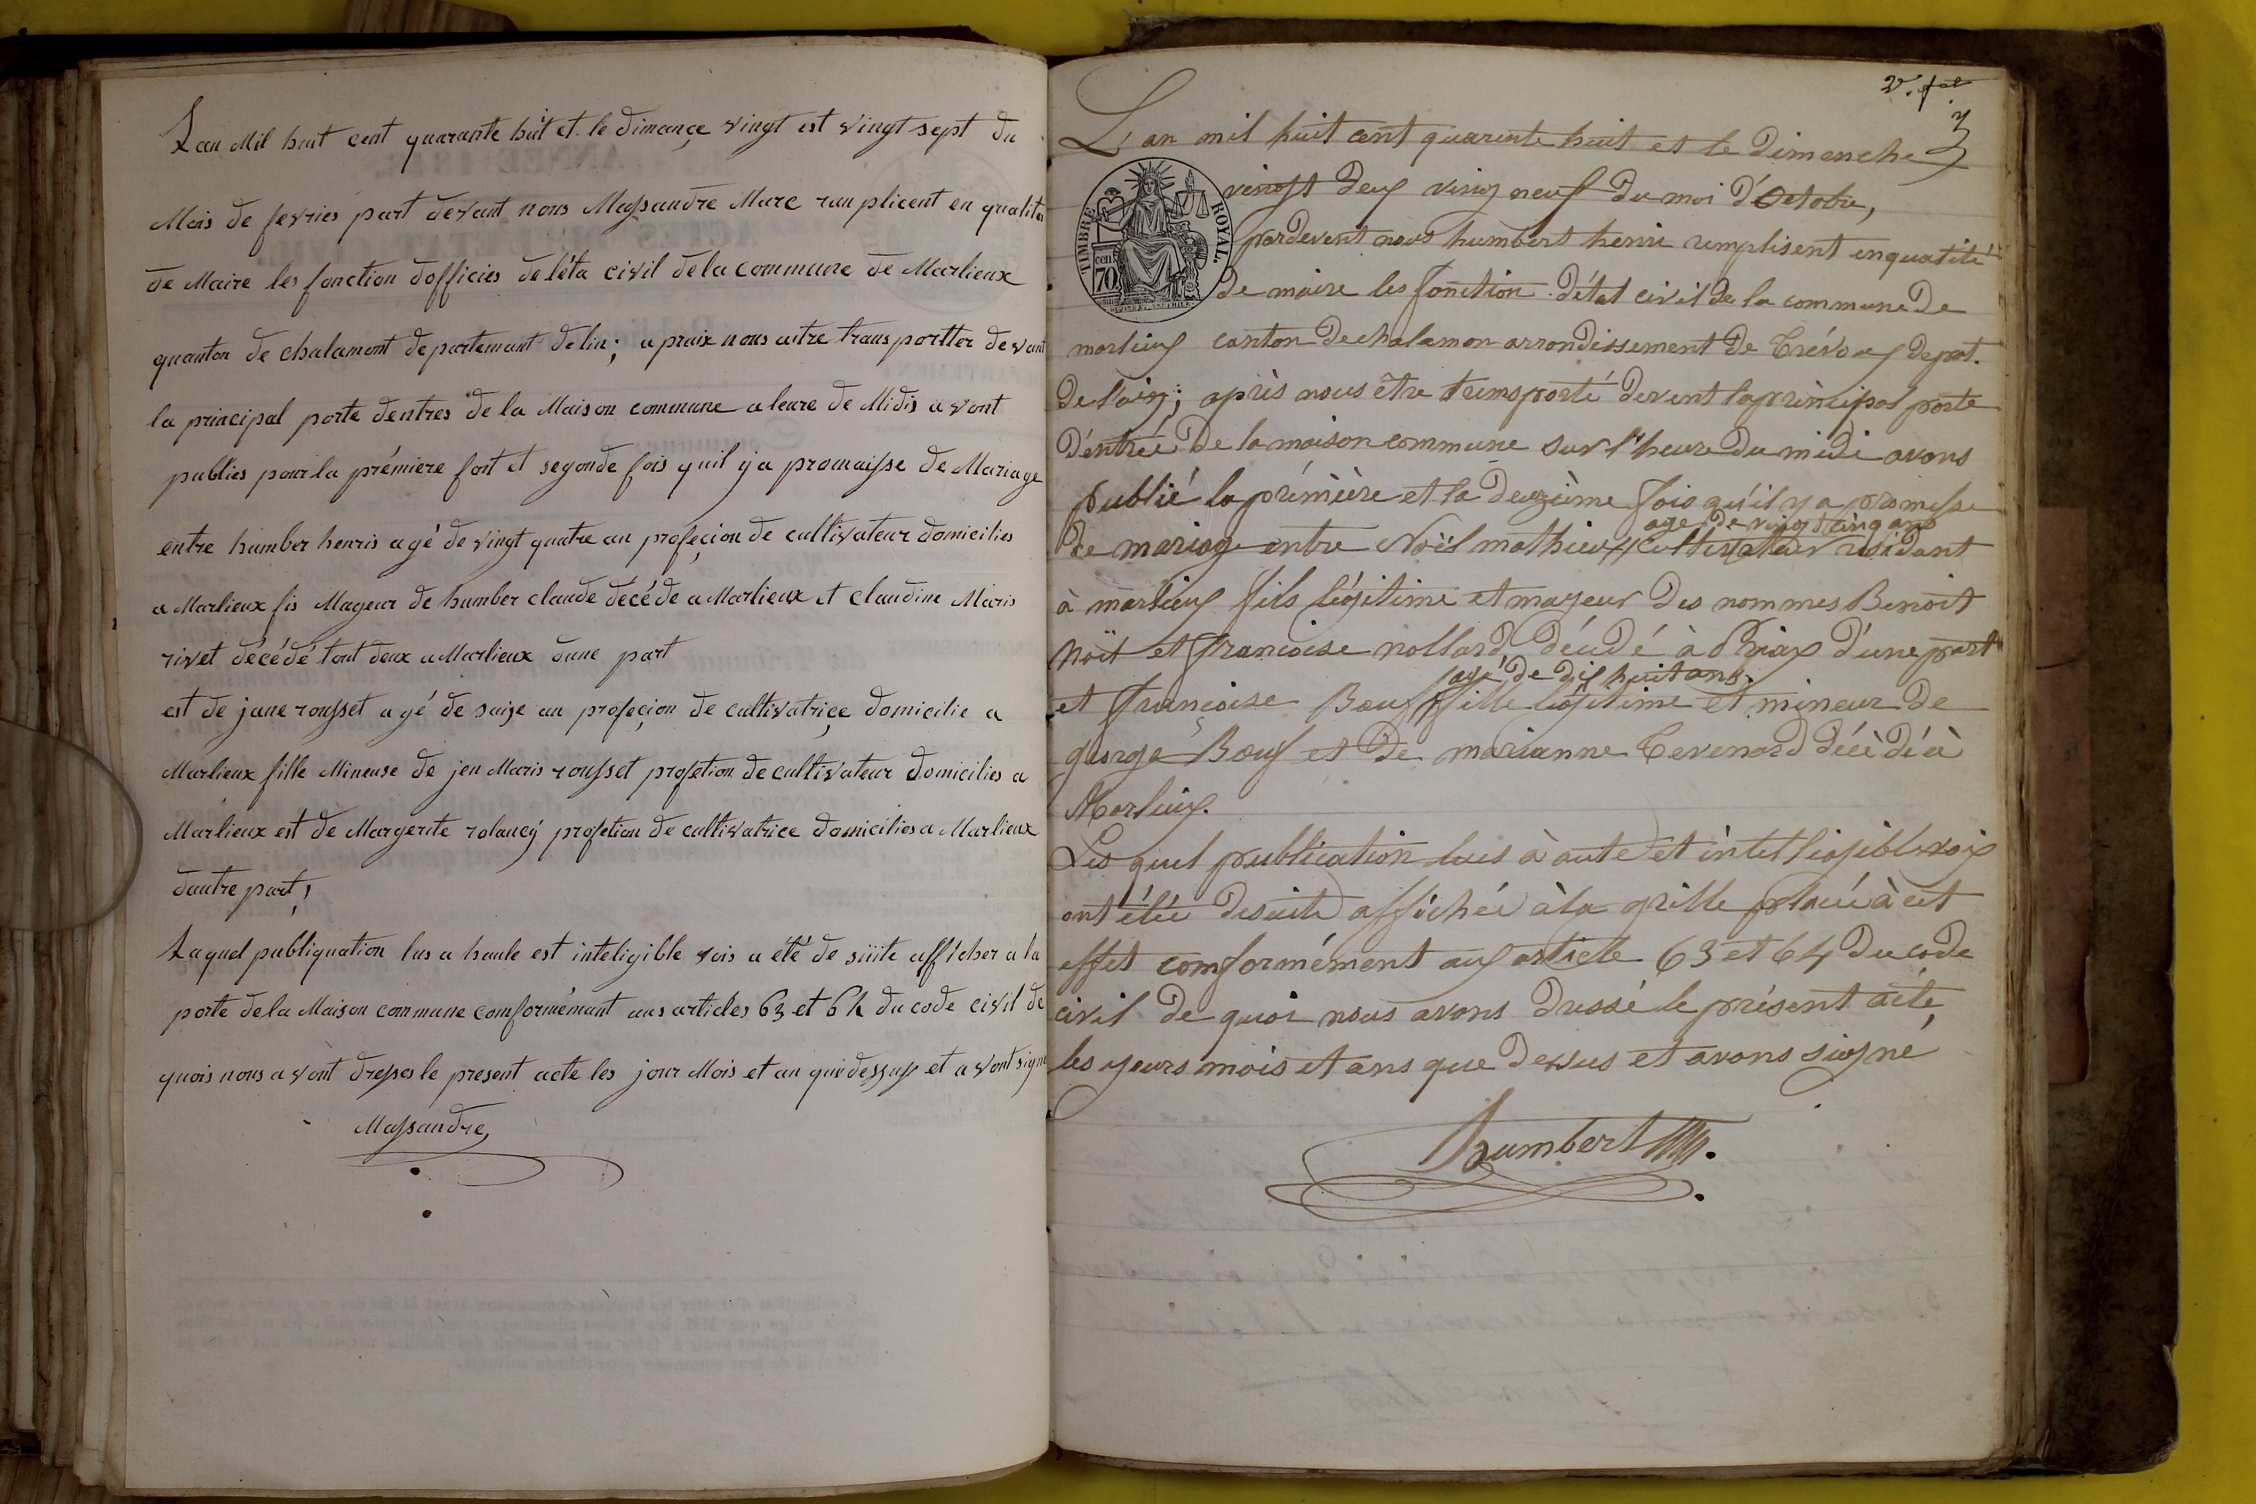 Lan Mil huit cent quarante huit et le dimançe vingt est vingt sept du
Mois de fevries part devant nous Massandre Marc ranplicent en qualite
de Maire les fonction dofficies de léta civil de la commune de Marlieux
quanton de chalamont departemant de lin; a praix nous aitre transportter devant
la principal porte dentres de la Maison commune a leure de Midis avont
publies pour la prémiere foit et segonde fois quil y a promaisse de Mariage
entre humber henris agé de vingt quatre an profeçion de cultivateur domicilies
a Marlieux fis Mageur de humber claude décéde a Marlieux et claudine Maris
rivet décédé tout deux a Marlieux dune part
est de jane rousset agé de saize an profeçion de cultivatriçe domicilie a
Marlieux fille Mineuse de jen Maris rousset profetion de cultivateur domicilies a
Marlieux est de Margerite rolancy profetion de cultivatrice domicilies a Marlieux
dautre part,
Laquel publiquation lus a haute est inteligible vois a été de suite afficher a la
porte de la Maison commune comformémant aus articles 63 et 64 du code civil de
quois nous avont dresses le present acte les jour Mois et an que dessus et avont signe
Massandre
2e. fol
3
L'an mil huit cent quarente huit et le dimenche
vingt deux ving neuf du moi d'Octobre,
pardevent nous humbert henri remplisent enqualité
de maire les fonction d'état civil de la commune de
marlieux canton de chalamon arrondissement de Trévoux depat.
de l'ain; après nous être transporté devent la principal porte
d'entrée de la maison commune sur l'heure du midi avons
publié la première et la deuxième fois qu'il y a promesse
age de vingt cinq ans
de mariage entre Noël mathieu cultivateur residant
à marlieux fils légitime et mageur des nommes Benoit
Noël et francoise nollard décédé à d'une part
agé de dix huit ans.
et françoise Bœuf fille légitime et mineur de
george Bœuf et de marianne Tevenard décèdé à
Marlieux.
Les quel publication lues à aute et intelligible voix
ont étéé desuite affichéé à la grille placéé à cet
effet comformément aux article 63 et 64 du code
civil de quoi nous avons dressé le présent acte,
les yours mois et ans que dessus et avons signé
humbert
TIMBRE ROYAL.
cen. 70